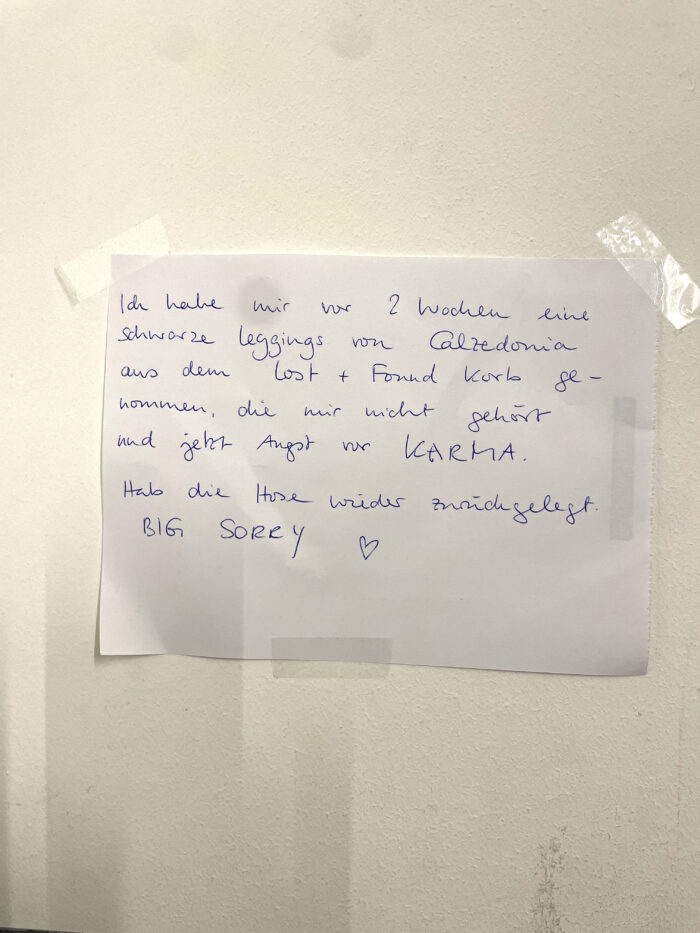 Ich habe mir vor 2 Wochen eine
schwarze Leggings von Calzedonia
aus dem Lost + Found Korb ge-
nommen, die mir nicht gehört
und jetzt Angst vor KARMA.
Hab die Hose wieder zurückgelegt.
BIG SORRY ♡